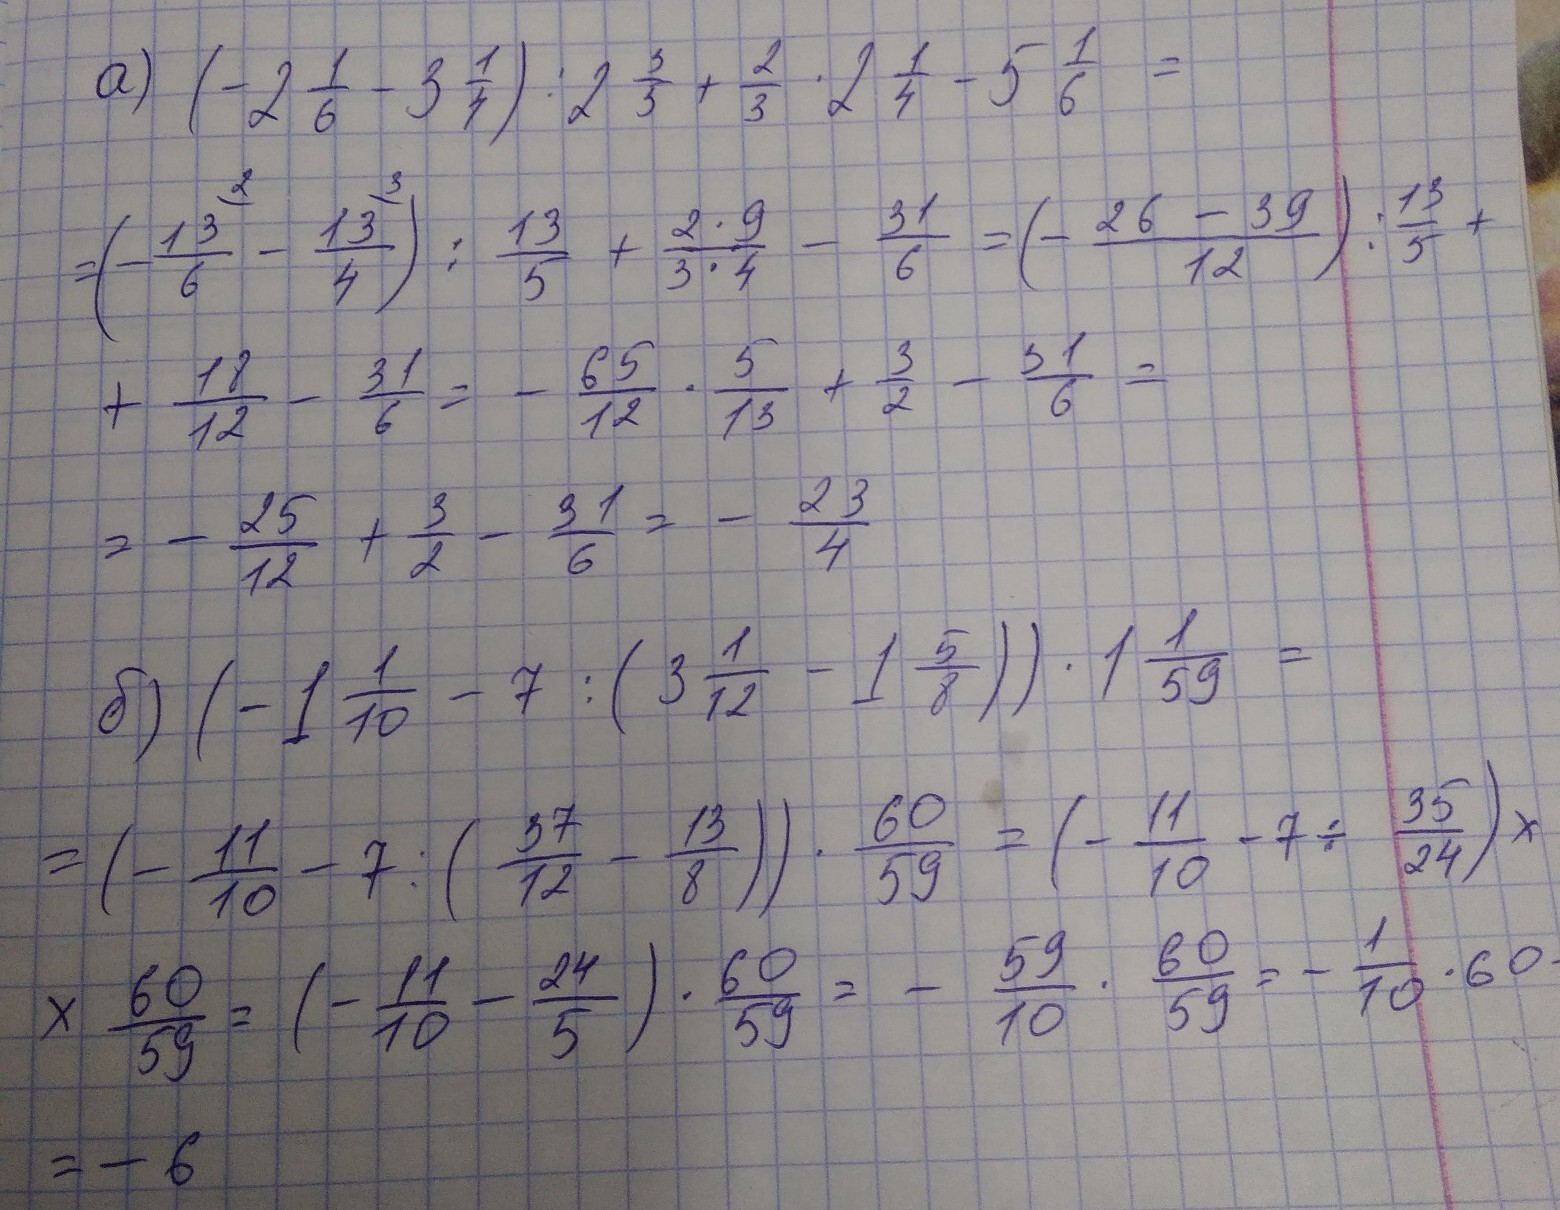 а) (-2 1/6 - 3 1/4) : 2 3/3 + 2/3 · 2 1/4 - 5 1/6 =
= (- 13/6 ⁽² - 13/4 ⁽³) : 13/5 + 2·9/3·4 - 31/6 = (- 26 - 39/12) : 13/5 +
+ 18/12 - 31/6 = - 65/12 · 5/13 + 3/2 - 31/6 =
= - 25/12 + 3/2 - 31/6 = - 23/4
б) (-1 1/10 - 7 : (3 1/12 - 1 5/8)) · 1 1/59 =
= (- 11/10 - 7 : (37/12 - 13/8)) · 60/59 = (- 11/10 - 7 ÷ 35/24) ×
× 60/59 = (- 11/10 - 24/5) · 60/59 = - 59/10 · 60/59 = - 1/10 · 60 -
= - 6